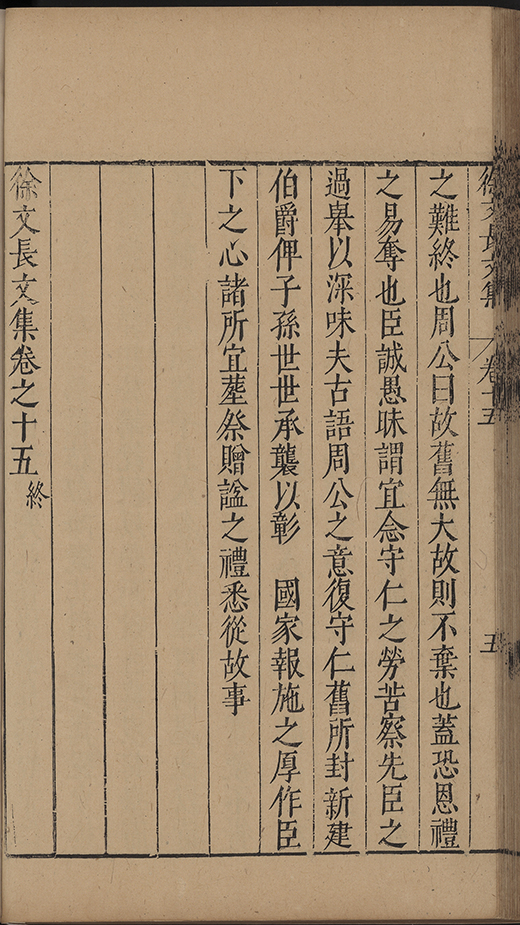 徐文長文集 卷十五 五
之難終也周公曰故舊無大故則不棄也蓋恐恩禮
之易奪也臣誠愚昧謂宜念守仁之勞苦察先臣之
過舉以深味夫古語周公之意復守仁舊所封新建
伯爵俾子孫世世承襲以彰　國家報施之厚作臣
下之心諸所宜塟祭贈諡之禮悉從故事
徐文長文集卷之十五終